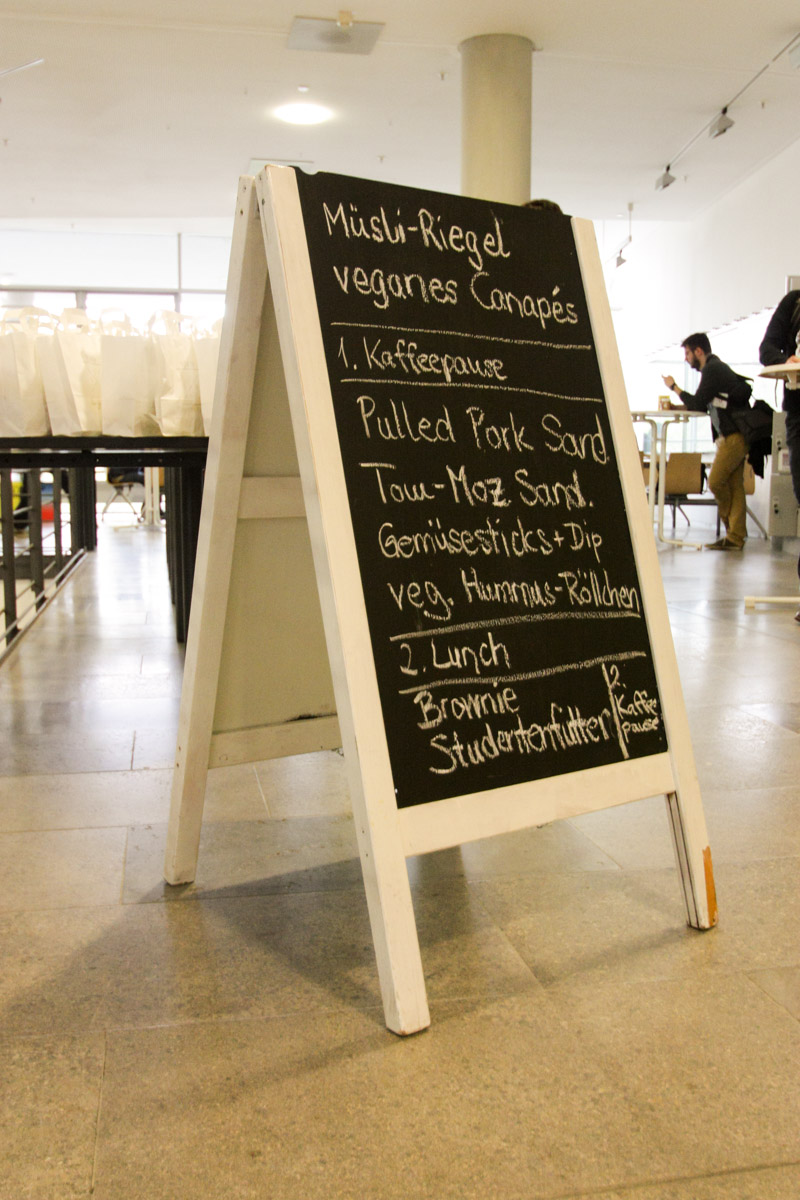 Müsli-Riegel
veganes Canapés
1. Kaffeepause
Pulled Pork Sand.
Tom-Moz Sand.
Gemüsesticks+Dip
veg. Hummus-Röllchen
2. Lunch
Brownie
Studentenfutter
2.
Kaffee
pause